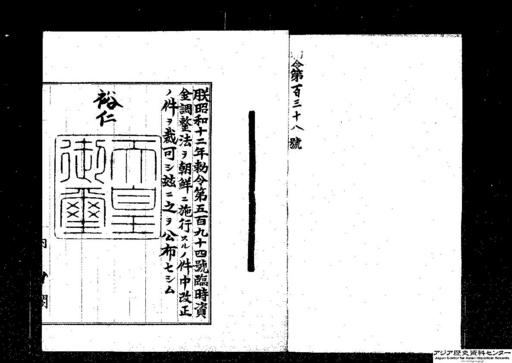 令第百三十八號
朕昭和十二年勅令第五百九十四號臨時資
金調整法ヲ朝鮮ニ施行スルノ件中改正
ノ件ヲ裁可シ玆ニ之ヲ公布セシム
裕仁
天皇
御璽
内閣
アジア歴史資料センター
Japan Center for Asian Historical Records